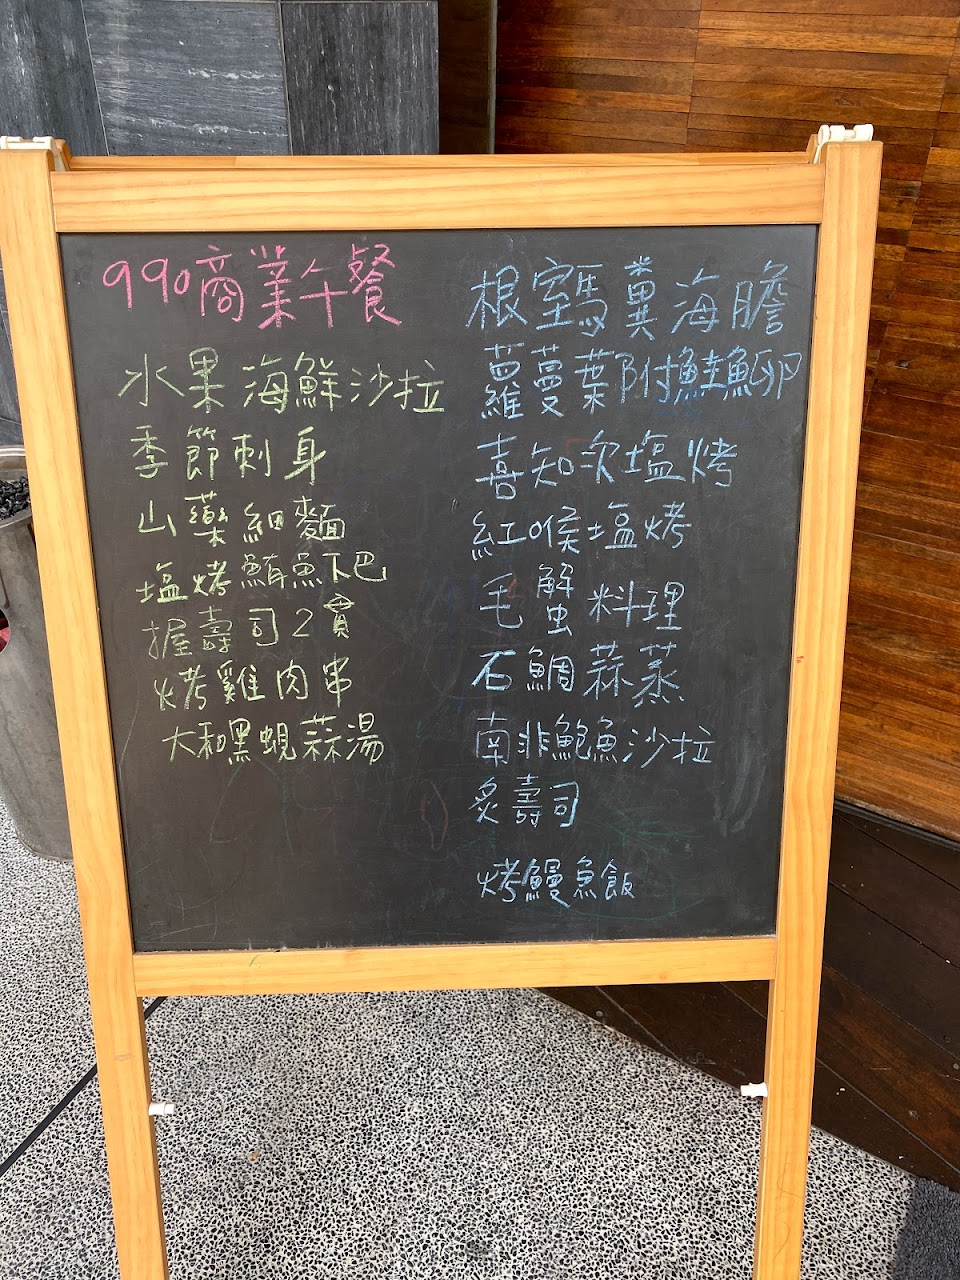 990商業午餐
水果海鮮沙拉
季節刺身
山藥細麵
塩烤鮪魚下巴
握壽司2貫
烤雞肉串
大和黑蜆蒜湯
根室馬糞海膽
蘿蔓葉附鮭魚卵
喜知次塩烤
紅喉塩烤
毛蟹料理
石鯛蒜蒸
南非鮑魚沙拉
炙壽司
烤鰻魚飯